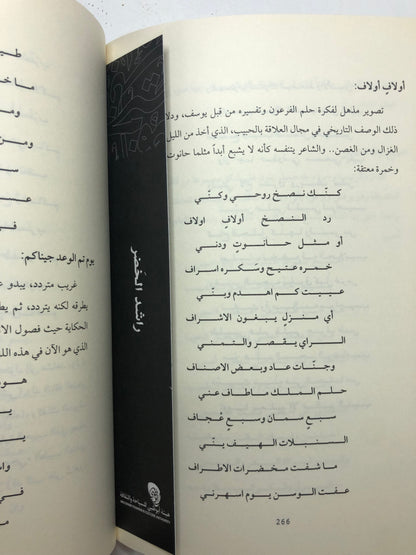 أولافٍ أولاف:
تصوير مذهل لفكرة حلم الفرعون وتفسيره من قبل يوسف، ودلا
ذلك الوصف التاريخي في مجال العلاقة بالحبيب، الذي أخذ من الليل
الغزال ومن الغصن.. والشاعر يتنفسه كأنه لا يشبع أبداً مثلما حانوت
وخمرة معتقة:
كنّك نصخ روحي وكنّي
رد النصخ أولافٍ اولاف
أو مثل حانوتٍ ودني
خمره عتيج وسكره اسراف
عييت كم اهدم وبنّي
أي منزلٍ يبغون الاشراف
الراي يقصر والتمني
وجنّات عاد وبعض الاصناف
حلم الملك ماطاف عني
سبع سمان وسبع عجاف
السنبلات الهيف ينّي
ما شفت مخضرات الاطراف
عفت الوسن يوم اسهرني
266
راشد الخضر
هيئة أبوظبي للسياحة والثقافة
يوم تم الوعد جيناكم:
غريب متردد، يبدو
يطرقه لكنه يتردد، ثم
الحكاية حيث فصول
الذي هو الآن في هذه